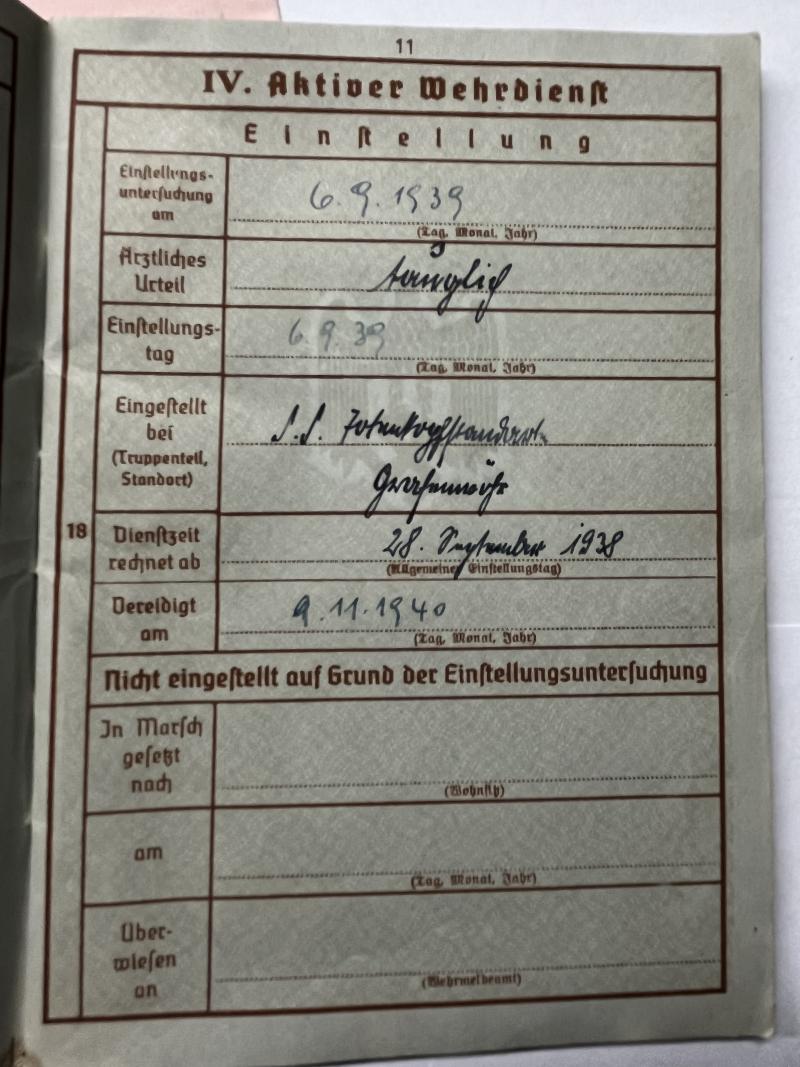 11
IV. Aktiver Wehrdienst
Einstellung
Einstellungs-
untersuchung
am
6.9.1939
(Tag, Monat, Jahr)
Ärztliches
Urteil
tauglich
Einstellungs-
tag
6.9.39
(Tag, Monat, Jahr)
Eingestellt
bei
(Truppenteil,
Standort)
S.S. Totenkopfstandarte
Grafenwöhr
18
Dienstzeit
rechnet ab
28. September 1938
(Allgemeiner Einstellungstag)
Vereidigt
am
9.11.1940
(Tag, Monat, Jahr)
Nicht eingestellt auf Grund der Einstellungsuntersuchung
In Marsch
gesetzt
nach
(Wohnsitz)
am
(Tag, Monat, Jahr)
Über-
wiesen
an
(Wehrmeldeamt)